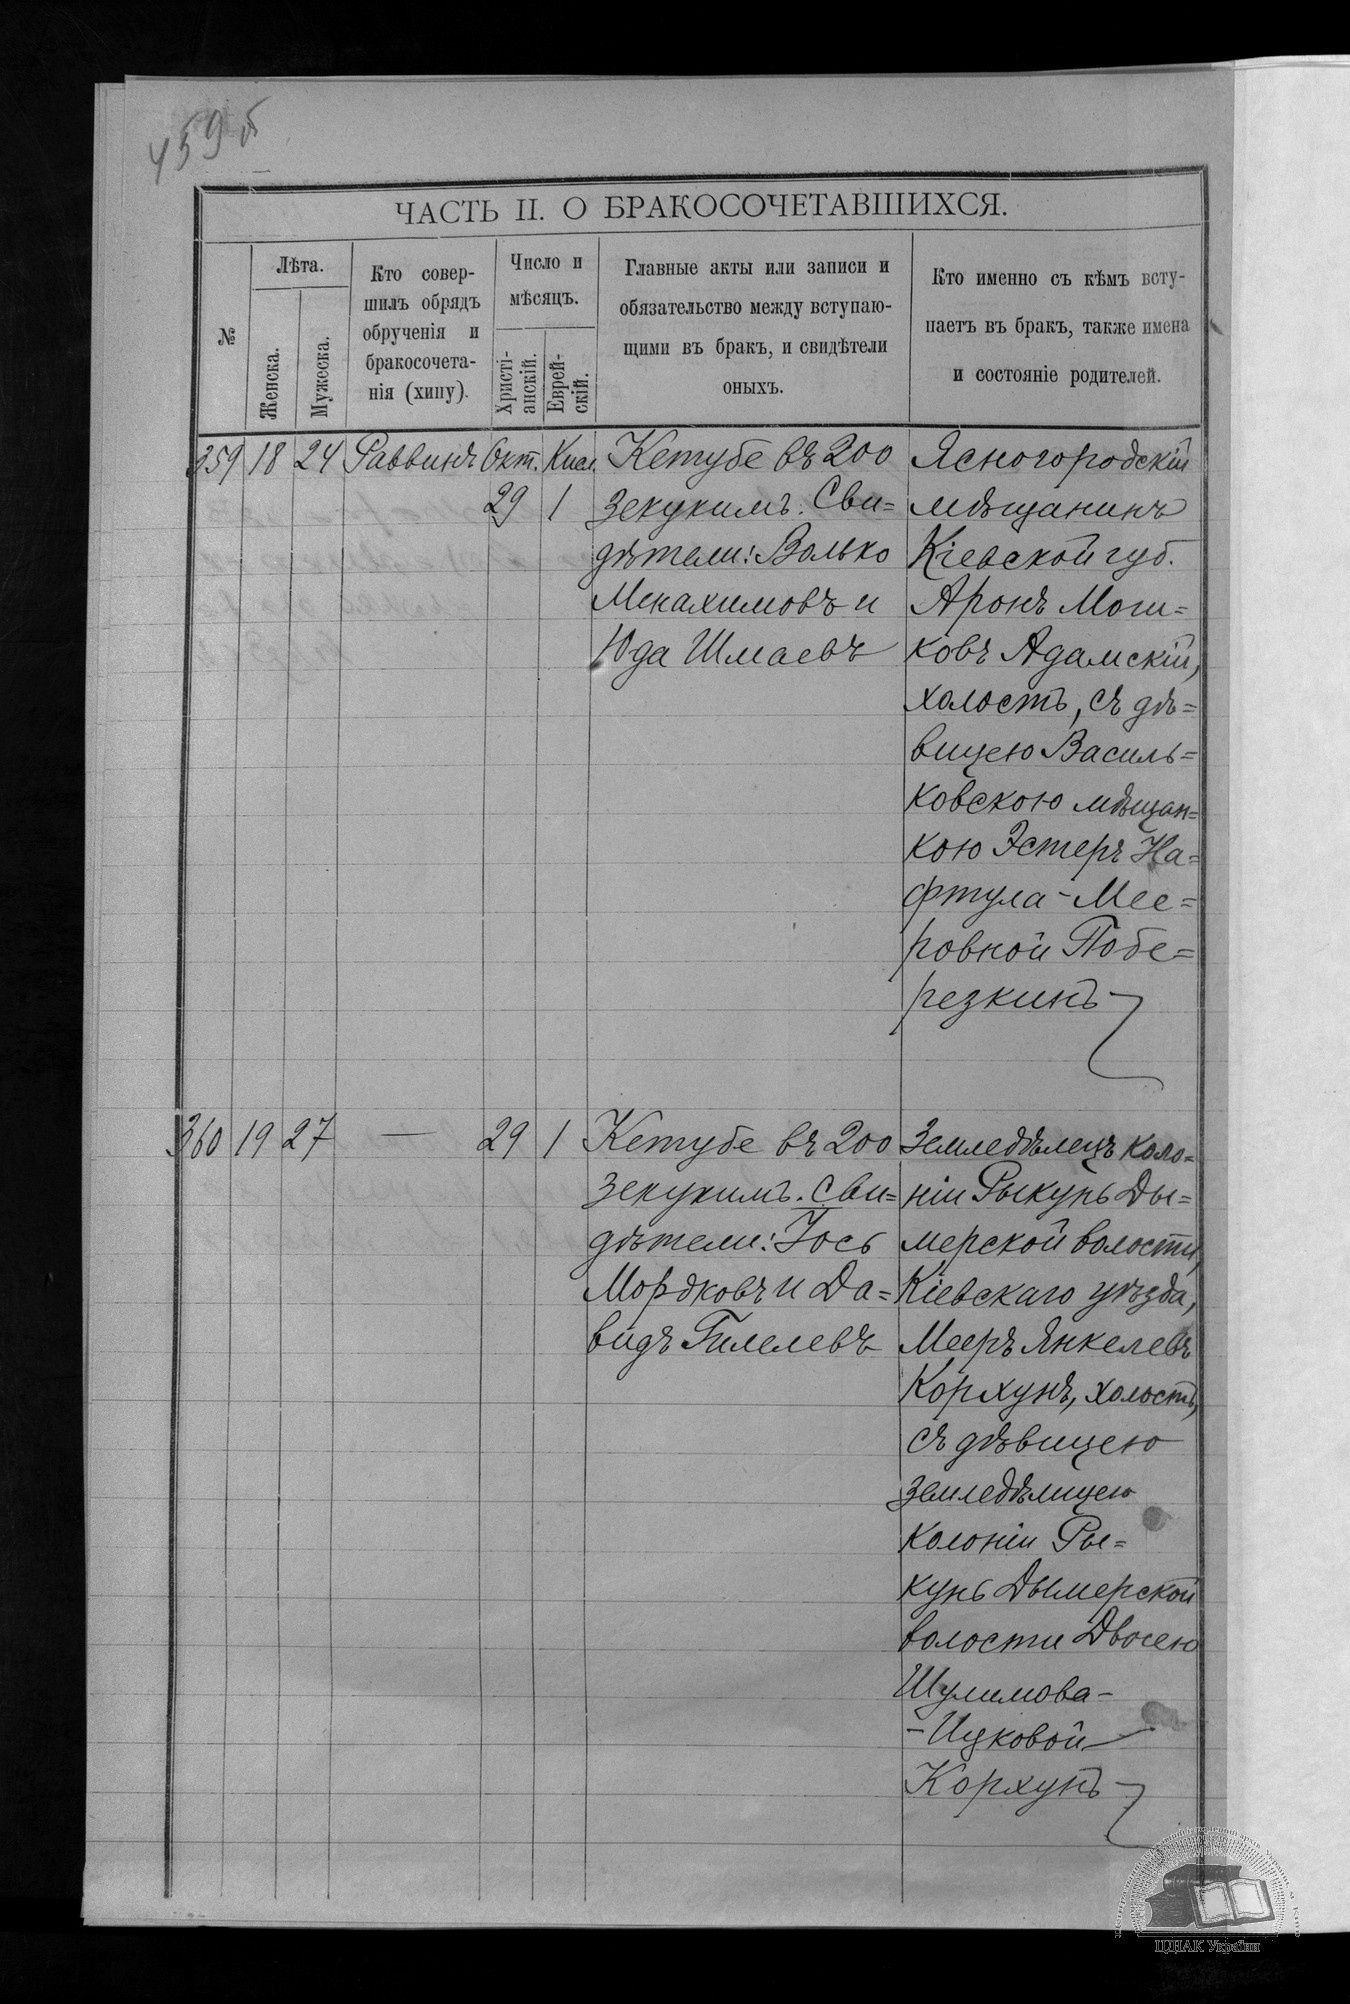 459 б
ЧАСТЬ II. О БРАКОСОЧЕТАВШИХСЯ.
№
Лѣта.
Женска.
Мужеска.
Кто совер-
шилъ обрядъ
обрученія и
бракосочета-
нія (хипу).
Число и
мѣсяцъ.
Христі-
анскій.
Еврей-
скій.
Главные акты или записи и
обязательство между вступаю-
щими въ бракъ, и свидѣтели
оныхъ.
Кто именно съ кѣмъ всту-
паетъ въ бракъ, также имена
и состояніе родителей.
359 18 24 Раввинъ Окт. Кисл.
29 1
Кетубе въ 200
зекукимъ. Сви=
дѣтели: Волько
Менахимовъ и
Юда Шмаевъ
Ясногородскій
мѣщанинъ
Кіевской губ.
Аронъ Мош=
ковъ Адамскій,
холостъ, съ дѣ=
вицею Василь=
ковскою мѣщан=
кою Эстеръ На=
фтула-Мее=
ровной Побе=
резкинъ
360 19 27 — 29 1
Кетубе въ 200
зекукимъ. Сви=
дѣтели: Іось
Мордковъ и Да=
видъ Гилелевъ
Земледѣлецъ коло=
ніи Рыкунь Ды=
мерской волости,
Кіевскаго уѣзда,
Мееръ Янкелевъ
Корхунъ, холостъ,
съ дѣвицею
земледѣлицею
колоніи Ры=
кунь Дымерской
волости Двосею
Шулимова-
-Ицковой
Корхунъ
ЦДІАК України